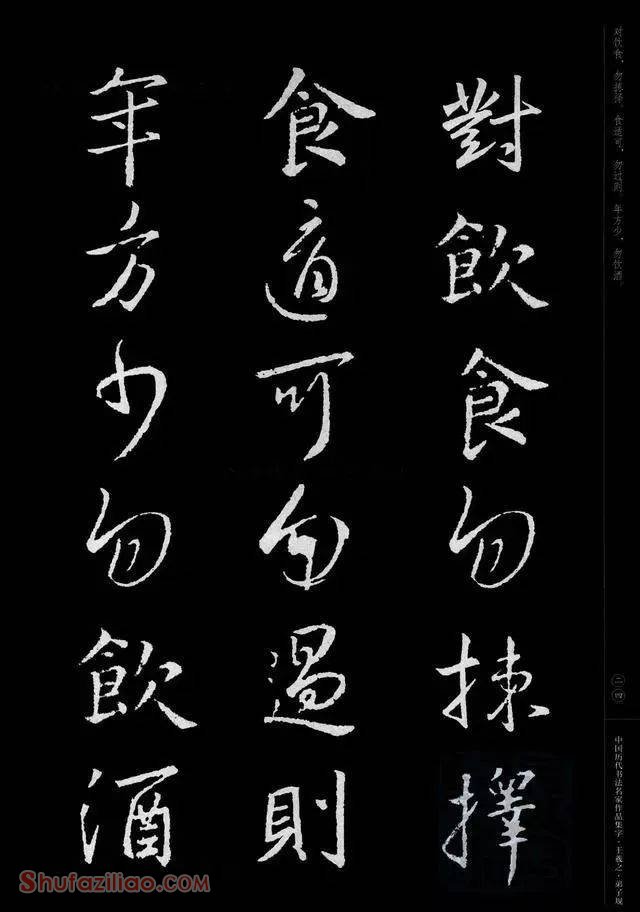 對飲食勿揀擇
食適可勿過則
年方少勿飲酒
对饮食，勿拣择。食适可，勿过则。年方少，勿饮酒。
二四
中国历代书法名家作品集字·王羲之·弟子规
Shufaziliao.com